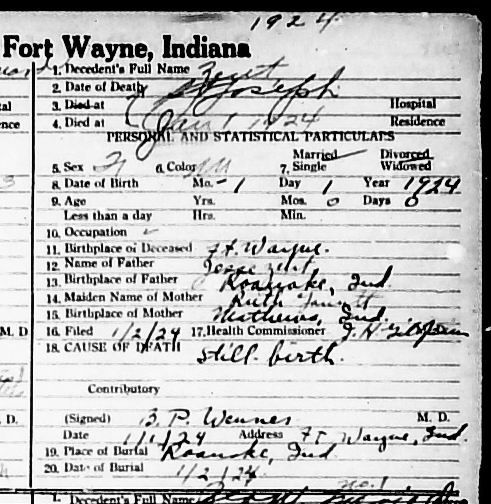 1924
Fort Wayne, Indiana
1. Decedent's Full Name Zent
2. Date of Death Joseph
3. Died at Hospital
4. Died at Jan 1 1924 Residence
PERSONAL AND STATISTICAL PARTICULARS
Married Divorced
5. Sex 6. Color 7. Single Widowed
8. Date of Birth Mo. - 1 Day 1 Year 1924
9. Age Yrs. Mos. 0 Days 0
Less than a day Hrs. Min.
10. Occupation
11. Birthplace of Deceased Ft. Wayne.
12. Name of Father Jesse Zent
13. Birthplace of Father Roanoke, Ind.
14. Maiden Name of Mother Ruth
15. Birthplace of Mother Matthews, Ind.
M. D. 16. Filed 1/2/24 17. Health Commissioner
18. CAUSE OF DEATH Still-birth.
Contributory
D. (Signed) B. P. M. D.
Date 1/1/24 Address Ft Wayne, Ind.
19. Place of Burial Roanoke, Ind
20. Date of Burial 1/2/24
no. 1
1. Decedent's Full Name